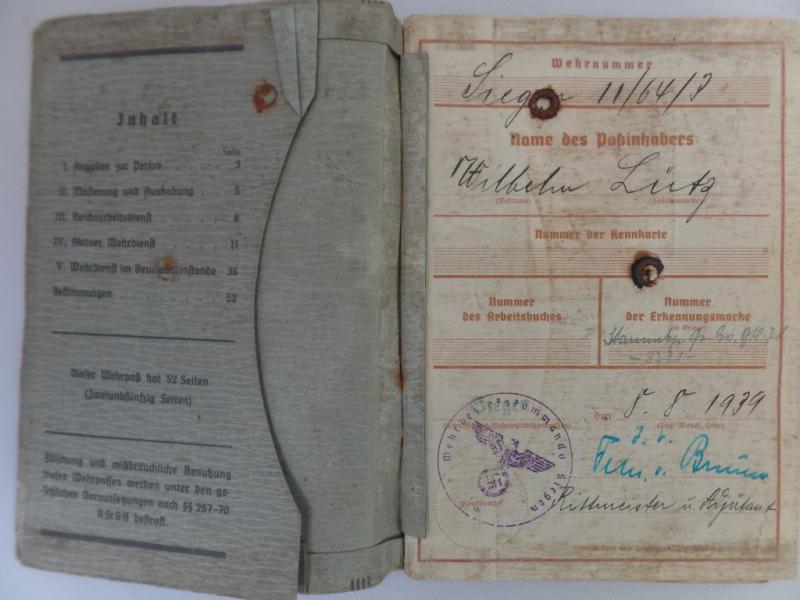 Inhalt
Seite
I. Angaben zur Person 3
II. Musterung und Aushebung 5
III. Reichsarbeitsdienst 8
IV. Aktiver Wehrdienst 11
V. Wehrdienst im Beurlaubtenstande 36
Bestimmungen 52
Dieser Wehrpaß hat 52 Seiten
(Zweiundfünfzig Seiten)
Fälschung und mißbräuchliche Benutzung
dieses Wehrpasses werden unter den ge-
setzlichen Voraussetzungen nach §§ 267-70
RStGB bestraft.
Wehrnummer
Siegen 11/64/7
Name des Paßinhabers
Wilhelm Lütz
(Rufname) (Familienname)
Nummer der Kennkarte
Nummer
des Arbeitsbuches
Nummer
der Erkennungsmarke
(im Kriege)
Siegen den 8. 8. 1939
(Tag, Monat, Jahr)
Wehrbezirkskommando Siegen
J. v.
Rittmeister u. Adjutant